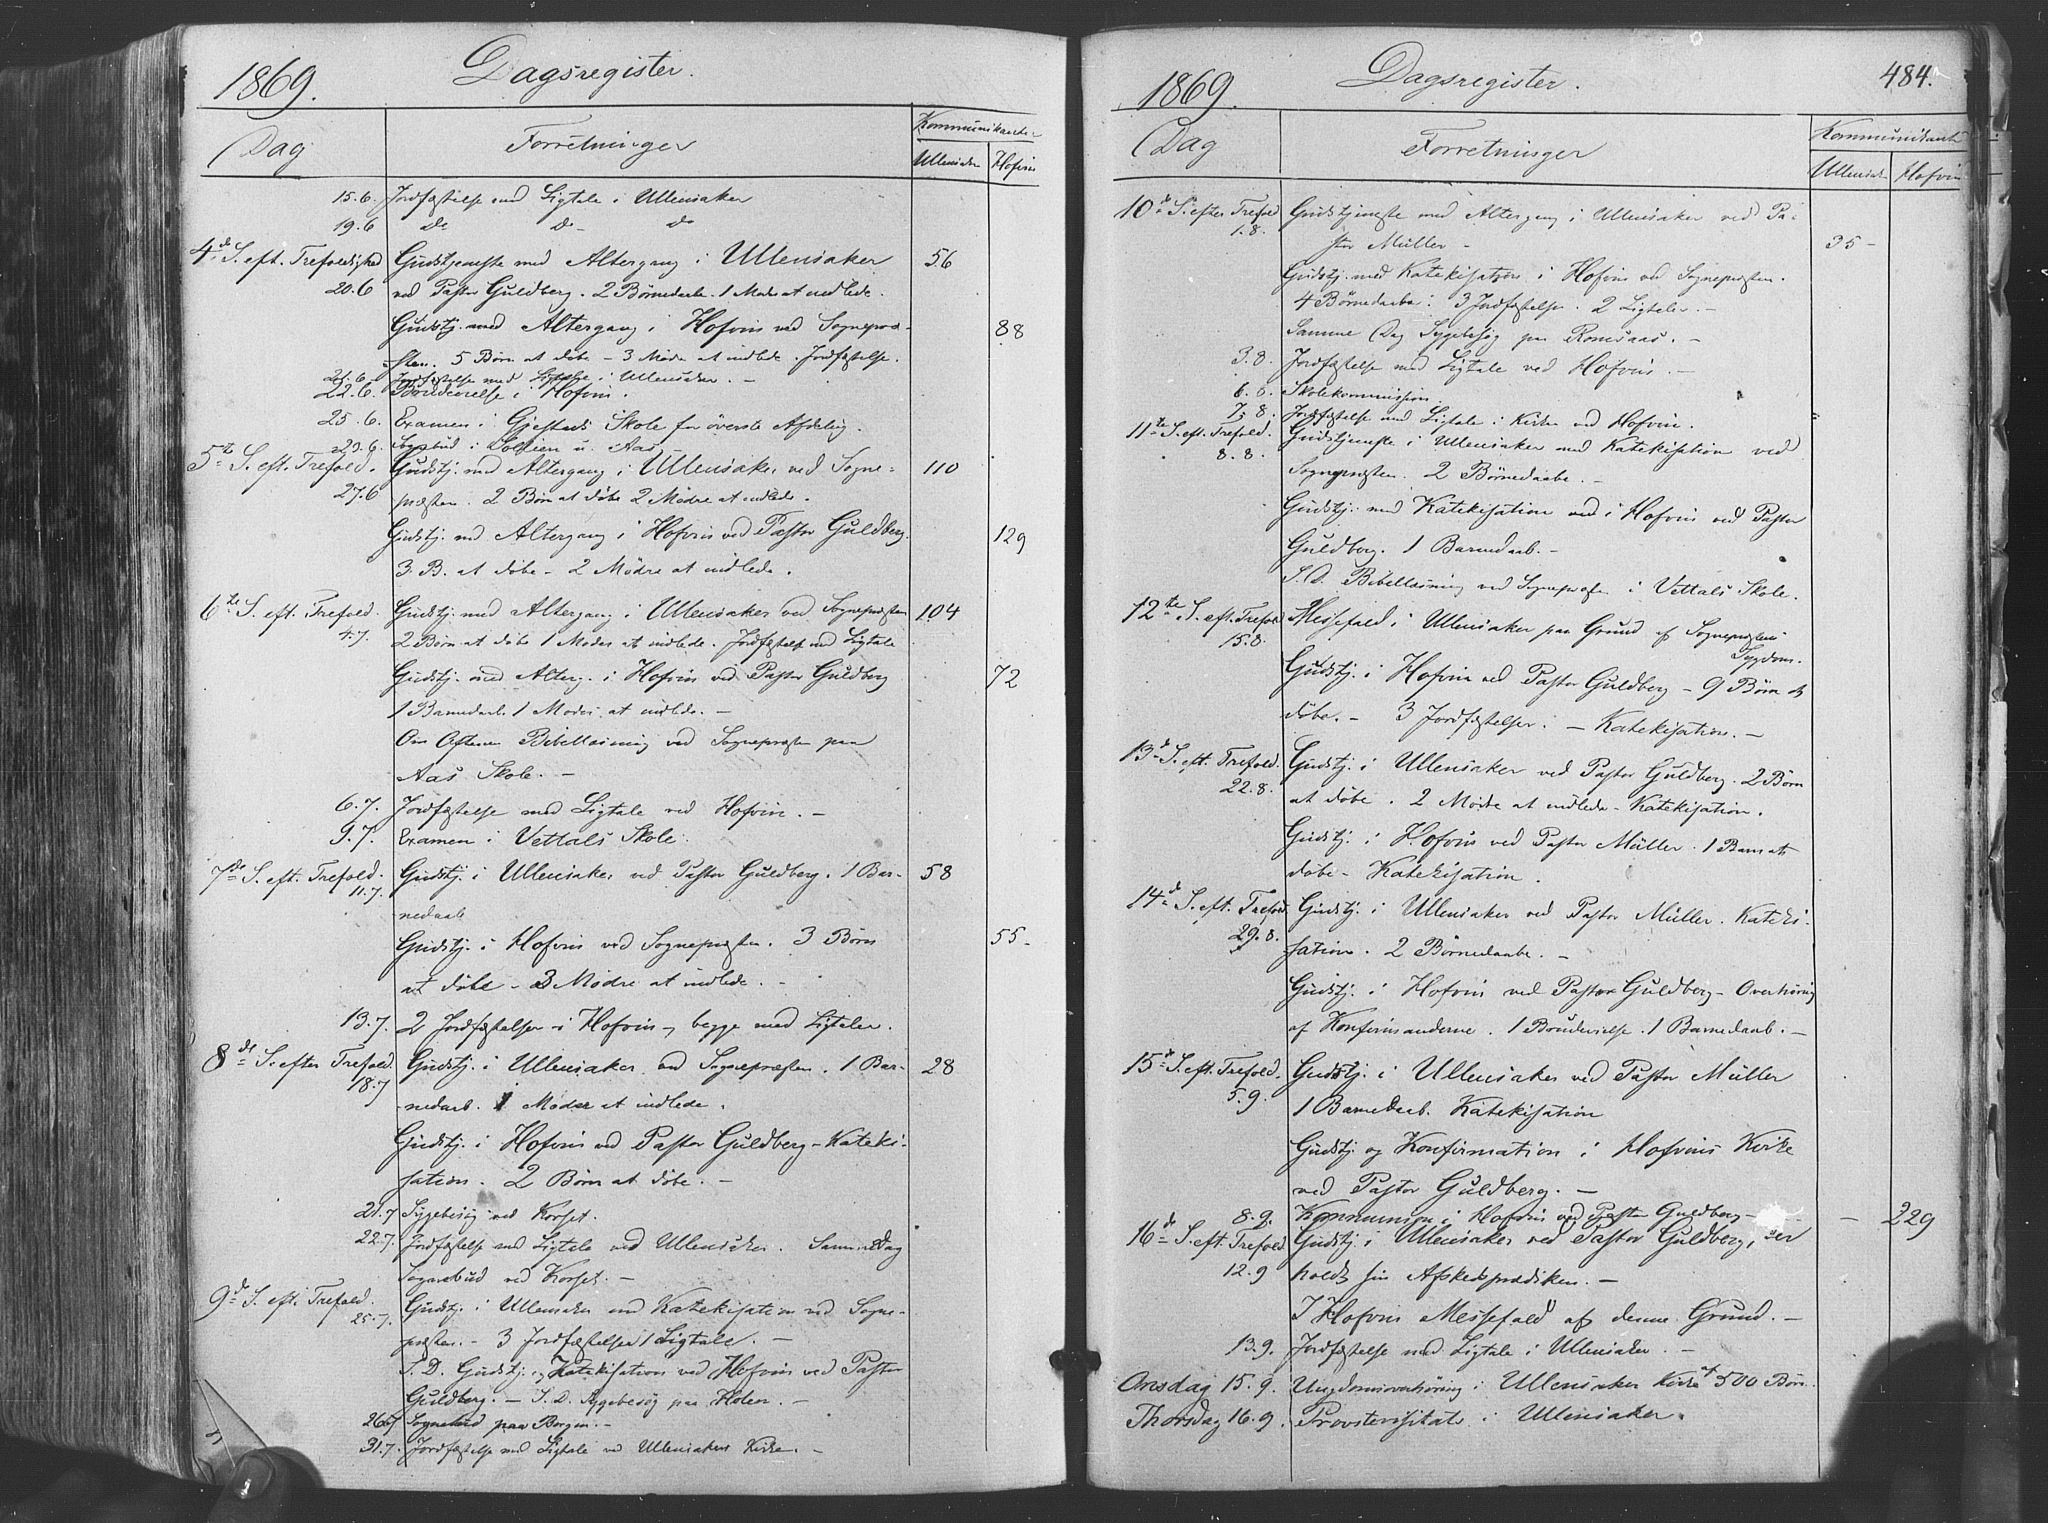 1869. Dagsregister.
Dag Forretninger Kommunikanter
Ullensaker Hofvin
15.6. Jordfæstelse med Ligtale i Ullensaker
19.6 do do do
4de S. eft. Trefoldighed Gudstjeneste med Altergang i Ullensaker 56
20.6 ved Pastor Guldberg. 2 Børnedaab. 1 Moder at indlede.
Gudstj. med Altergang i Hofvin ved Sognepræ- 88
sten. 5 Børn at døbe - 3 Mødre at indlede. Jordfæstelse.
21.6 Jordfæstelse med Ligtale i Ullensaker. -
22.6. Brudevielse i Hofvin.
25.6. Examen i Gjestads Skole for øverste Afdeling.
Sognebud i u. Aas -
5te S. eft. Trefold. Gudstj. med Altergang i Ullensaker ved Sogne- 110
27.6 præsten. 2 Børn at døbe 2 Mødre at indlede.
Gudstj. med Altergang i Hofvin ved Pastor Guldberg. 129
3 B. at døbe - 2 Mødre at indlede.
6te S. eft. Trefold. Gudstj. med Altergang i Ullensaker ved Sognepræsten 104
4.7. 2 Børn at døbe 1 Moder at indlede. Jordfæstelse med Ligtale
Gudstj. med Alterg. i Hofvin ved Pastor Guldberg 72
1 Barnedaab 1 Moder at indlede. -
Om Aftenen Bibellæsning ved Sognepræsten paa
Aas Skole. -
6.7. Jordfæstelse med Ligtale ved Hofvin. -
9.7. Examen i Vettals Skole.
7de S. eft. Trefold. Gudstj. i Ullensaker ved Pastor Guldberg. 1 Bar- 58
11.7. nedaab
Gudstj. i Hofvin ved Sognepræsten. 3 Børn 55-
at døbe - 3 Mødre at indlede. -
13.7. 2 Jordfæstelser i Hofvin, begge med Ligtaler.
8de S. efter Trefold. Gudstj. i Ullensaker ved Sognepræsten. 1 Bar- 28
18.7 nedaab. 1 Moder at indlede.
Gudstj. i Hofvin ved Pastor Guldberg - Kateki-
sation. 2 Børn at døbe. -
21.7 Sygebesøg ved Korset.
22.7. Jordfæstelse med Ligtale ved Ullensaker. Samme Dag
Sognebud ved Korset. -
9de S. eft. Trefold. Gudstj. i Ullensaker med Katekisation ved Sogne-
25.7. præsten. - 3 Jordfæstelser 1 Ligtale. -
S.D. Gudstj. og Katekisation ved Hofvin ved Pastor
Guldberg. - S.D. Sygebesøg paa Holen. -
26.7 Sognebud paa Borgen. -
31.7. Jordfæstelse med Ligtale ved Ullensakers Kirke. -
1869. Dagsregister. 484.
Dag Forretninger Kommunikanter
Ullensaker Hofvin
10de S. efter Trefold Gudstjeneste med Altergang i Ullensaker ved Pa-
1.8. stor Müller - 35 -
Gudstj. med Katekisation i Hofvin ved Sognepræsten.
4 Børnedaabe. 3 Jordfæstelser. 2 Ligtaler. -
Samme Dag Sygebesøg paa Romsaas. -
3.8. Jordfæstelse med Ligtale ved Hofvin. -
6.8. Skolekommission.
7.8. Jordfæstelse med Ligtale i Kirken ved Hofvin.
11te S. eft. Trefold. Gudstjeneste i Ullensaker med Katekisation ved
8.8. Sognepræsten. 2 Børnedaabe. -
Gudstj. med Katekisation ved i Hofvin ved Pastor
Guldberg. 1 Barnedaab. -
S.D. Bibellæsning ved Sognepræsten i Vettals Skole.
12te S. eft. Trefold Messefald i Ullensaker paa Grund af Sognepræstens
15.8. Sygdom.
Gudstj. i Hofvin ved Pastor Guldberg - 9 Børn at
døbe. - 3 Jordfæstelser. - Katekisation. -
13de S. eft. Trefold. Gudstj. i Ullensaker ved Pastor Guldberg. 2 Børn
22.8. at døbe. 2 Mødre at indlede - Katekisation.
Gudstj. i Hofvin ved Pastor Müller. 1 Barn at
døbe - Katekisation.
14de S. eft. Trefold. Gudstj. i Ullensaker ved Pastor Müller. Kateki-
29.8. sation. 2 Børnedaabe. -
Gudstj. i Hofvin ved Pastor Guldberg - Overhøring
af Konfirmanderne. 1 Brudevielse. 1 Barnedaab. -
15de S. eft. Trefold. Gudstj. i Ullensaker ved Pastor Müller
5.9. 1 Barnedaab. Katekisation
Gudstj. og Konfirmation i Hofvins Kirke
ved Pastor Guldberg. -
8.9. Kommunion i Hofvin ved Pastor Guldberg - - 229
16de S. eft. Trefold Gudstj. i Ullensaker ved Pastor Guldberg, der
12.9 holdt sin Afskedsprædiken. -
I Hofvin Messefald af denne Grund. -
13.9. Jordfæstelse med Ligtale i Ullensaker. -
Onsdag 15.9. Ungdomsoverhøring i Ullensaker Kirke af 500 Børn.
Thorsdag 16.9. Provstevisitats i Ullensaker.